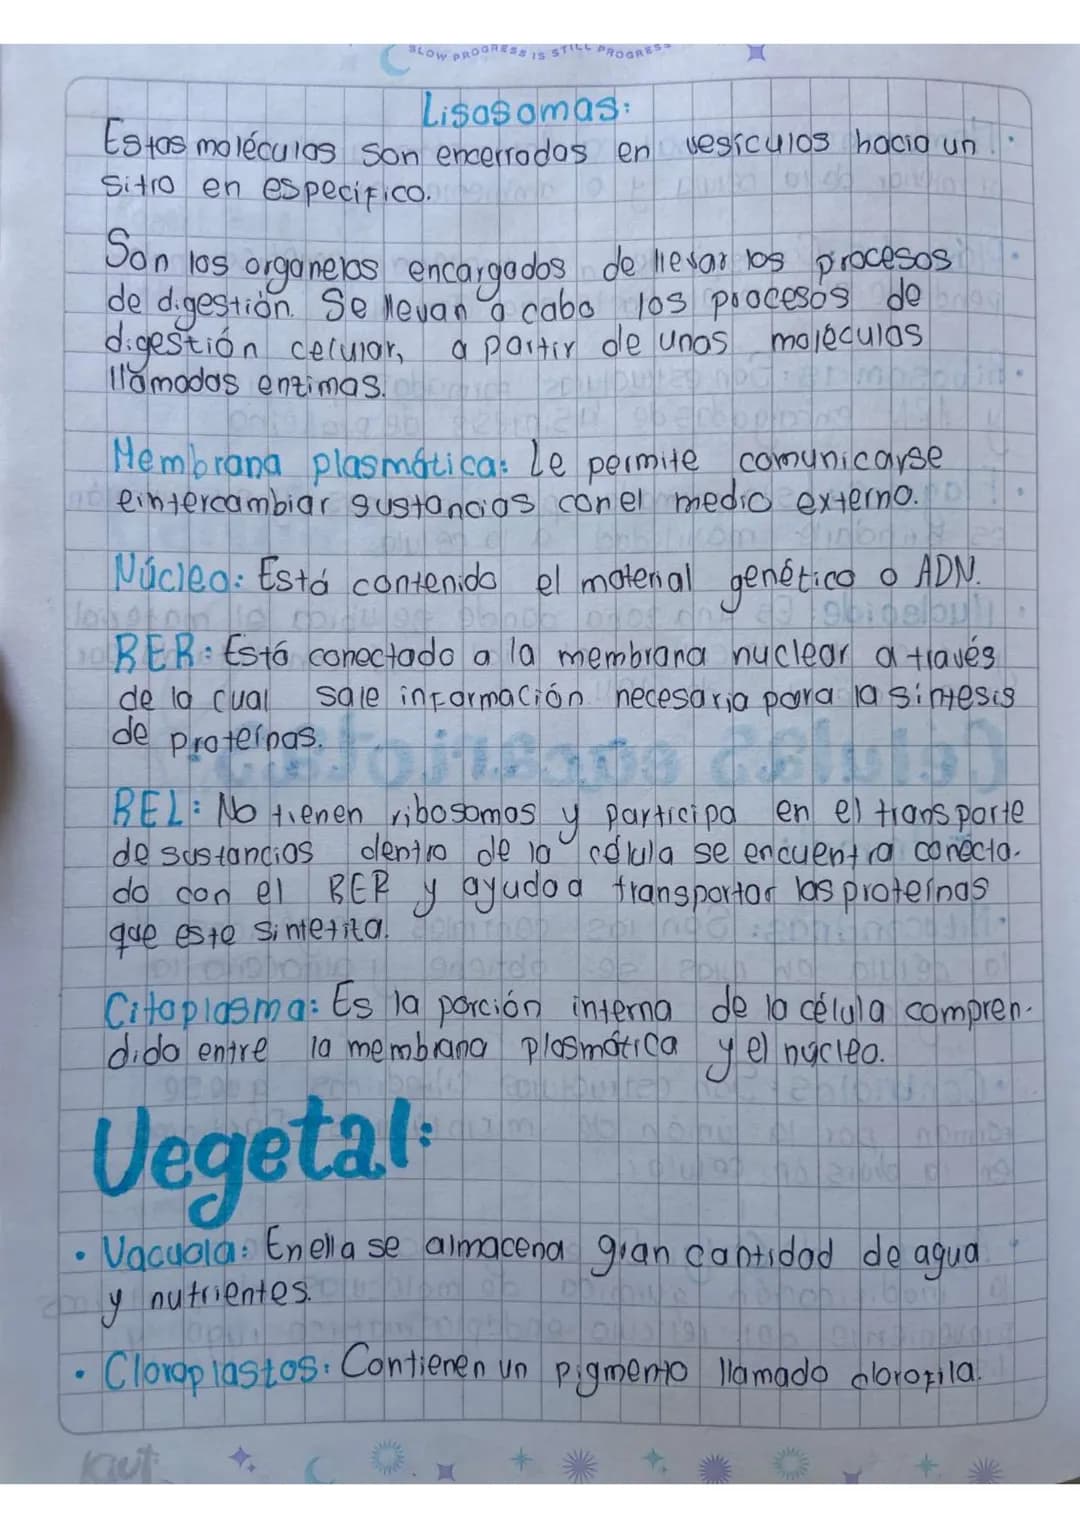 SLOW PROGRESS IS STILL PROGRESS
Lisosomas:
Estas moléculas son encerradas en vesículas hacia un
sitro en especifico.
Son los organelos encargados de llevar los procesos
de digestión. Se llevan a cabo los procesos de
digestión celular, a partir de unas moléculas
llamadas enzimas.
Membrana plasmática: Le permite comunicarse
e intercambiar sustancias con el medio externo.
Núcleo: Está contenido el material genético o ADN.
RER: Está conectado a la membrana nuclear a través
de la cual sale información necesaria para la síntesis
de proteínas.
REL: No tienen ribosomas y participa en el transporte
de sustancias dentro de la célula se encuentra conecta-
do con el RER y ayuda a transportar las proteínas
que este sintetita.
Citoplasma: Es la porción interna de la célula compren-
dida entre la membrana plasmática y el núcleo.
Vegetal:
• Vacuola: En ella se almacena gran cantidad de agua
y nutrientes.
• Cloroplastos: Contienen un pigmento llamado clorofila.